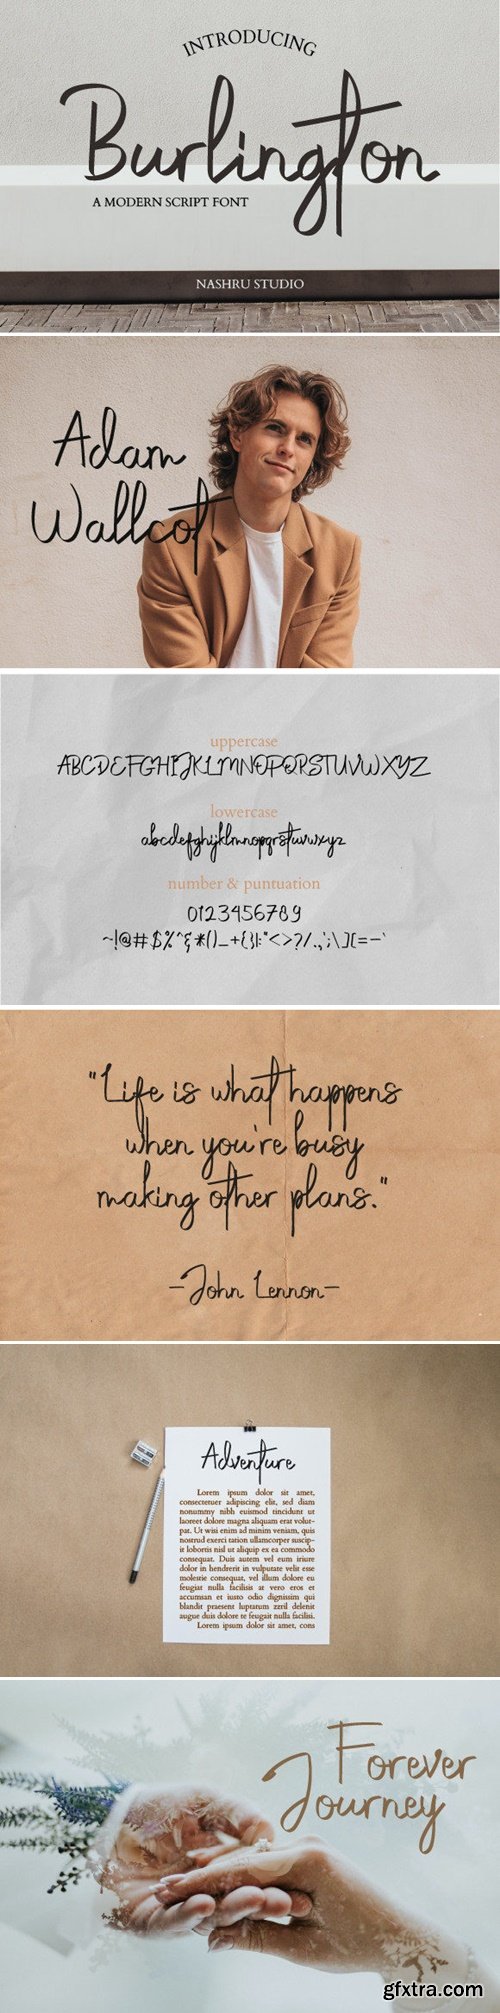 INTRODUCING
Burlington
A MODERN SCRIPT FONT
NASHRU STUDIO
Adam
Wallcot
uppercase
ABCDEFGHIJKLMNOPQRSTUVWXYZ
lowercase
abcdefghijklmnopqrstuvwxyz
number & puntuation
0123456789
~!@#$%^&*()_+{}|:"<>?/.,';\][=-`
"Life is what happens
when you're busy
making other plans."
-John Lennon-
Adventure
Lorem ipsum dolor sit amet,
consectetuer adipiscing elit, sed diam
nonummy nibh euismod tincidunt ut
laoreet dolore magna aliquam erat volut-
pat. Ut wisi enim ad minim veniam, quis
nostrud exerci tation ullamcorper suscip-
it lobortis nisl ut aliquip ex ea commodo
consequat. Duis autem vel eum iriure
dolor in hendrerit in vulputate velit esse
molestie consequat, vel illum dolore eu
feugiat nulla facilisis at vero eros et
accumsan et iusto odio dignissim qui
blandit praesent luptatum zzril delenit
augue duis dolore te feugait nulla facilisi.
Lorem ipsum dolor sit amet, cons
Forever
Journey
gfxtra.com